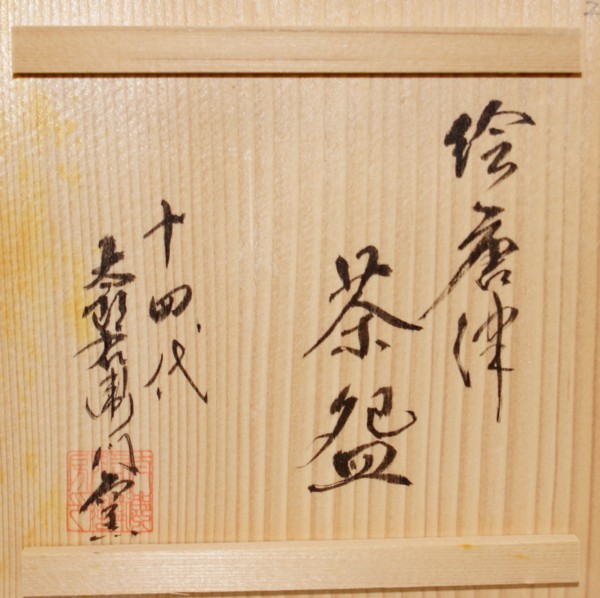 絵唐津
茶盌
十四代
太郎右衛門窯